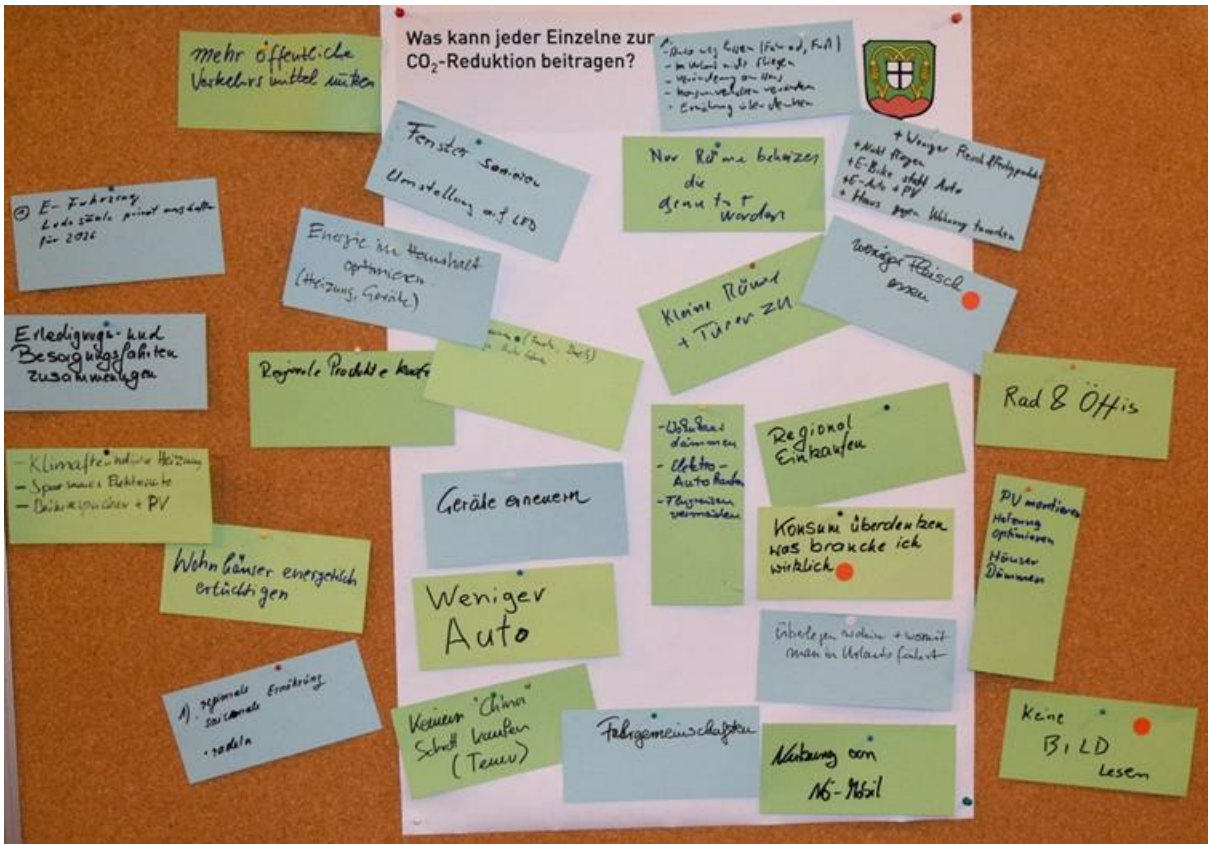 Was kann jeder Einzelne zur
CO₂-Reduktion beitragen?
mehr öffentliche
Verkehrsmittel nützen
- Auto weg lassen (Fahrrad, Fuß)
- im Urlaub nicht fliegen
- Veränderung am Haus
- Konsumverhalten verändern
- Ernährung überdenken
Fenster sanieren
Umstellung auf LED
Nur Räume beheizen
die
genutzt
werden
+ Weniger Fleisch
+ Nicht fliegen
+ E-Bike statt Auto
+ E-Auto + PV
+ Haus gegen Wohnung tauschen
E-Fahrzeug
Ladesäule privat anschaffen
für 2026
Energie im Haushalt
optimieren
(Heizung, Geräte)
weniger Fleisch
essen
Kleine Räume
+ Türen zu
Erledigungs- und
Besorgungsfahrten
zusammenlegen
Regionale Produkte kaufen
Rad & Öffis
- Wohnhaus
dämmen
- Elektro-
Auto kaufen
- Flugreisen
vermeiden
Regional
Einkaufen
- Klimafreundliche Heizung
- Sparsames Elektroauto
- Batteriespeicher + PV
Geräte erneuern
PV montieren
Heizung
optimieren
Häuser
Dämmen
Konsum überdenken
was brauche ich
wirklich
Wohnhäuser energetisch
ertüchtigen
Weniger
Auto
Überlegen wohin + womit
man in Urlaub fährt
1) regionale Ernährung
saisonale
• radeln
Keinen "China"
Schrott kaufen
(Temu)
Fahrgemeinschaften
Nutzung von
NÖ-Mobil
Keine
BILD
Lesen